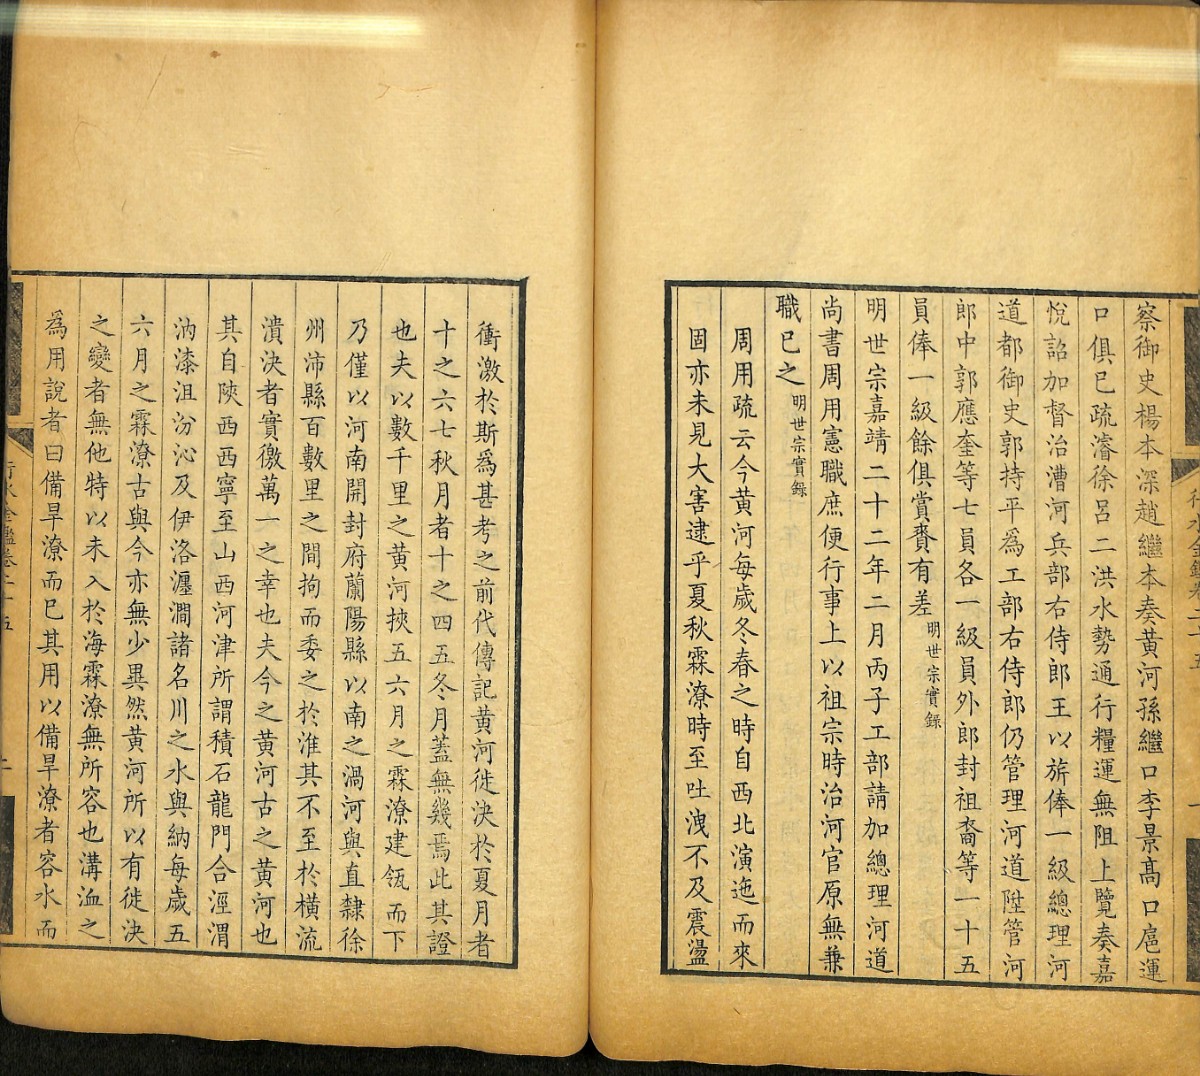 察御史楊本深趙繼本奏黃河孫繼口李景高口扈運
口俱已疏濬徐呂二洪水勢通行糧運無阻上覽奏嘉
悅詔加督治漕河兵部右侍郎王以旂俸一級總理河
道都御史郭持平為工部右侍郎仍管理河道陞管河
郎中郭應奎等七員各一級員外郎封祖裔等一十五
員俸一級餘俱賞賚有差明世宗實錄
明世宗嘉靖二十二年二月丙子工部請加總理河道
尚書周用憲職庶便行事上以祖宗時治河官原無兼
職已之明世宗實錄
周用疏云今黃河每歲冬春之時自西北演迤而來
固亦未見大害逮乎夏秋霖潦時至吐洩不及震盪
衝激於斯為甚考之前代傳記黃河徙決於夏月者
十之六七秋月者十之四五冬月蓋無幾焉此其證
也夫以數千里之黃河挾五六月之霖潦建瓴而下
乃僅以河南開封府蘭陽縣以南之渦河與直隸徐
州沛縣百數里之間拘而委之於淮其不至於橫流
潰決者實徼萬一之幸也夫今之黃河古之黃河也
其自陝西西寧至山西河津所謂積石龍門合涇渭
汭漆沮汾沁及伊洛瀍澗諸名川之水與納每歲五
六月之霖潦古與今亦無少異然黃河所以有徙決
之變者無他特以未入於海霖潦無所容也溝洫之
為用說者曰備旱潦而已其用以備旱潦者容水而
行水金鑑卷二十五